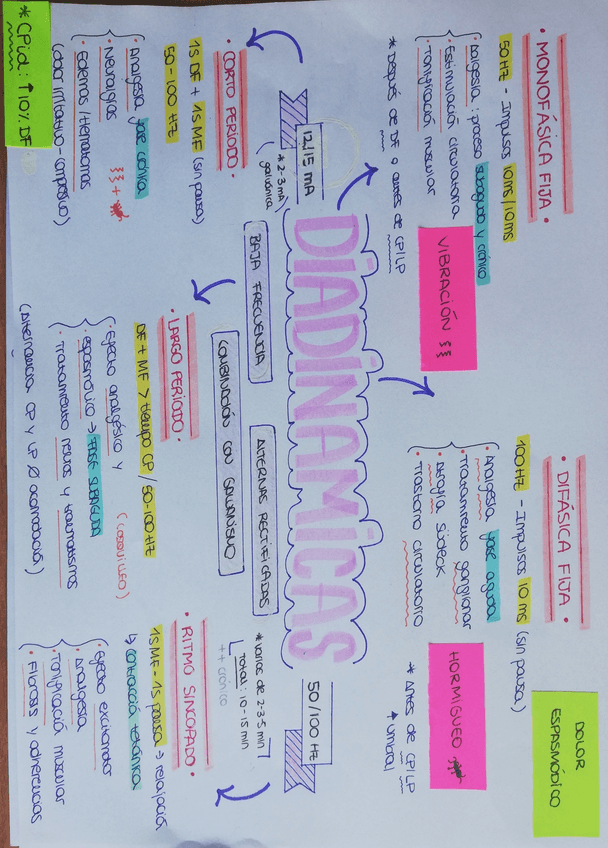 • MONOFÁSICA FIJA •
50 HZ - Impulsos 10ms/10ms
• Algesia: proceso subagudo y crónico
• Estimulación circulatoria
• Tonificación muscular
* DESPUÉS DE DF O antes de CP/LP
VIBRACIÓN
• DIFÁSICA FIJA •
100 HZ - Impulsos 10 ms (sin pausa)
• Analgesia fase aguda
• Tratamiento ganglionar
• Atrofia Südeck
• Trastorno circulatorio
HORMIGUEO
* Antes de CP/LP
↑ umbral
DOLOR
ESPASMÓDICO
12/15 mA
* 2-3 mA
galvánica
DIADINÁMICAS
50/100 HZ
BAJA FRECUENCIA
ALTERNAS RECTIFICADAS
COMBINACIÓN CON GALVANISMO
* varios de 2-3-5 min
Total: 10-15 min
++ crónico
• CORTO PERÍODO •
1S DF + 1S MF (sin pausa)
50-100 HZ
• Analgesia fase crónica
• Neuralgias
+
• Edemas/Hematomas
(dolor irritativo-compresivo)
* CPid: ↑10% DF
• LARGO PERÍODO •
DF + MF > tiempo CP / 50-100 HZ
• Efecto analgésico y
(cosquilleo)
espasmolítico → FASE SUBAGUDA
• Tratamiento neuros y traumatismos
(Alternancia CP y LP Ø acomodación)
• RITMO SINCOPADO •
1S MF - 1S pausa → relajación
↳ contracción tetánica
• Efecto excitomotor
• Analgesia
• Tonificación muscular
• Fibrosis y adherencias